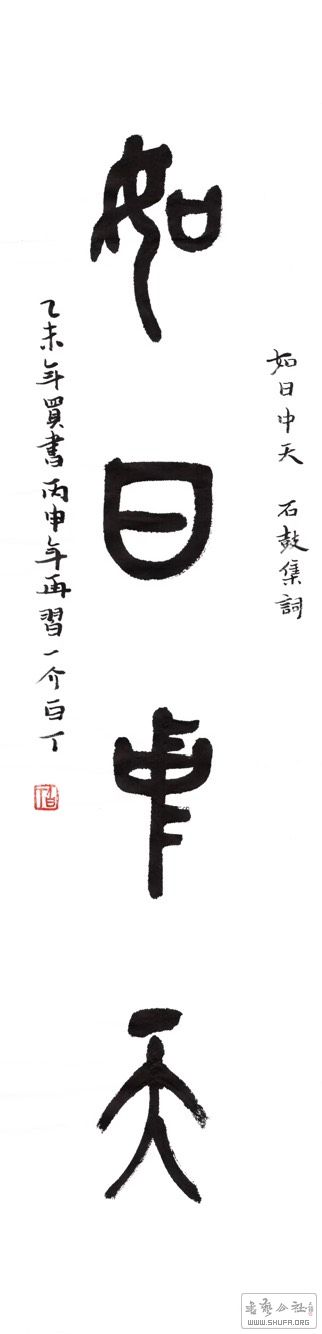 如日中天 石鼓集詞
如日中天
乙未年買書丙申年再習一介白丁
WWW.SHUFA.ORG